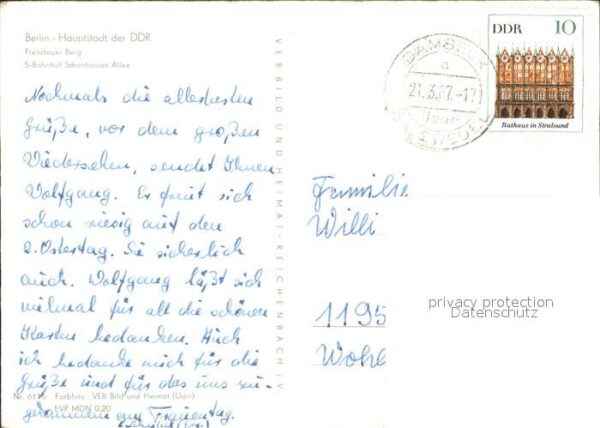 Berlin - Hauptstadt der DDR
Prenzlauer Berg
S-Bahnhof Schönhauser Allee
Nochmals die allerbesten
Grüße, vor dem großen
Wiedersehen, sendet Ihnen
Wolfgang. Er freut sich
schon riesig auf den
2. Ostertag. Sie sicherlich
auch. Wolfgang läßt sich
vielmal für all die schönen
Karten bedanken. Auch
ich bedanke mich für die
Grüße und für das uns zu-
gekommene am Frauentag.
Nr. 6116 Farbfoto: VEB Bild und Heimat (Darr)
EVP MDN 0,20
VEB BILD UND HEIMAT · REICHENBACH i. V.
21.3.67.-17
DDR 10
Rathaus in Stralsund
Familie
Willi
1195
privacy protection
Datenschutz